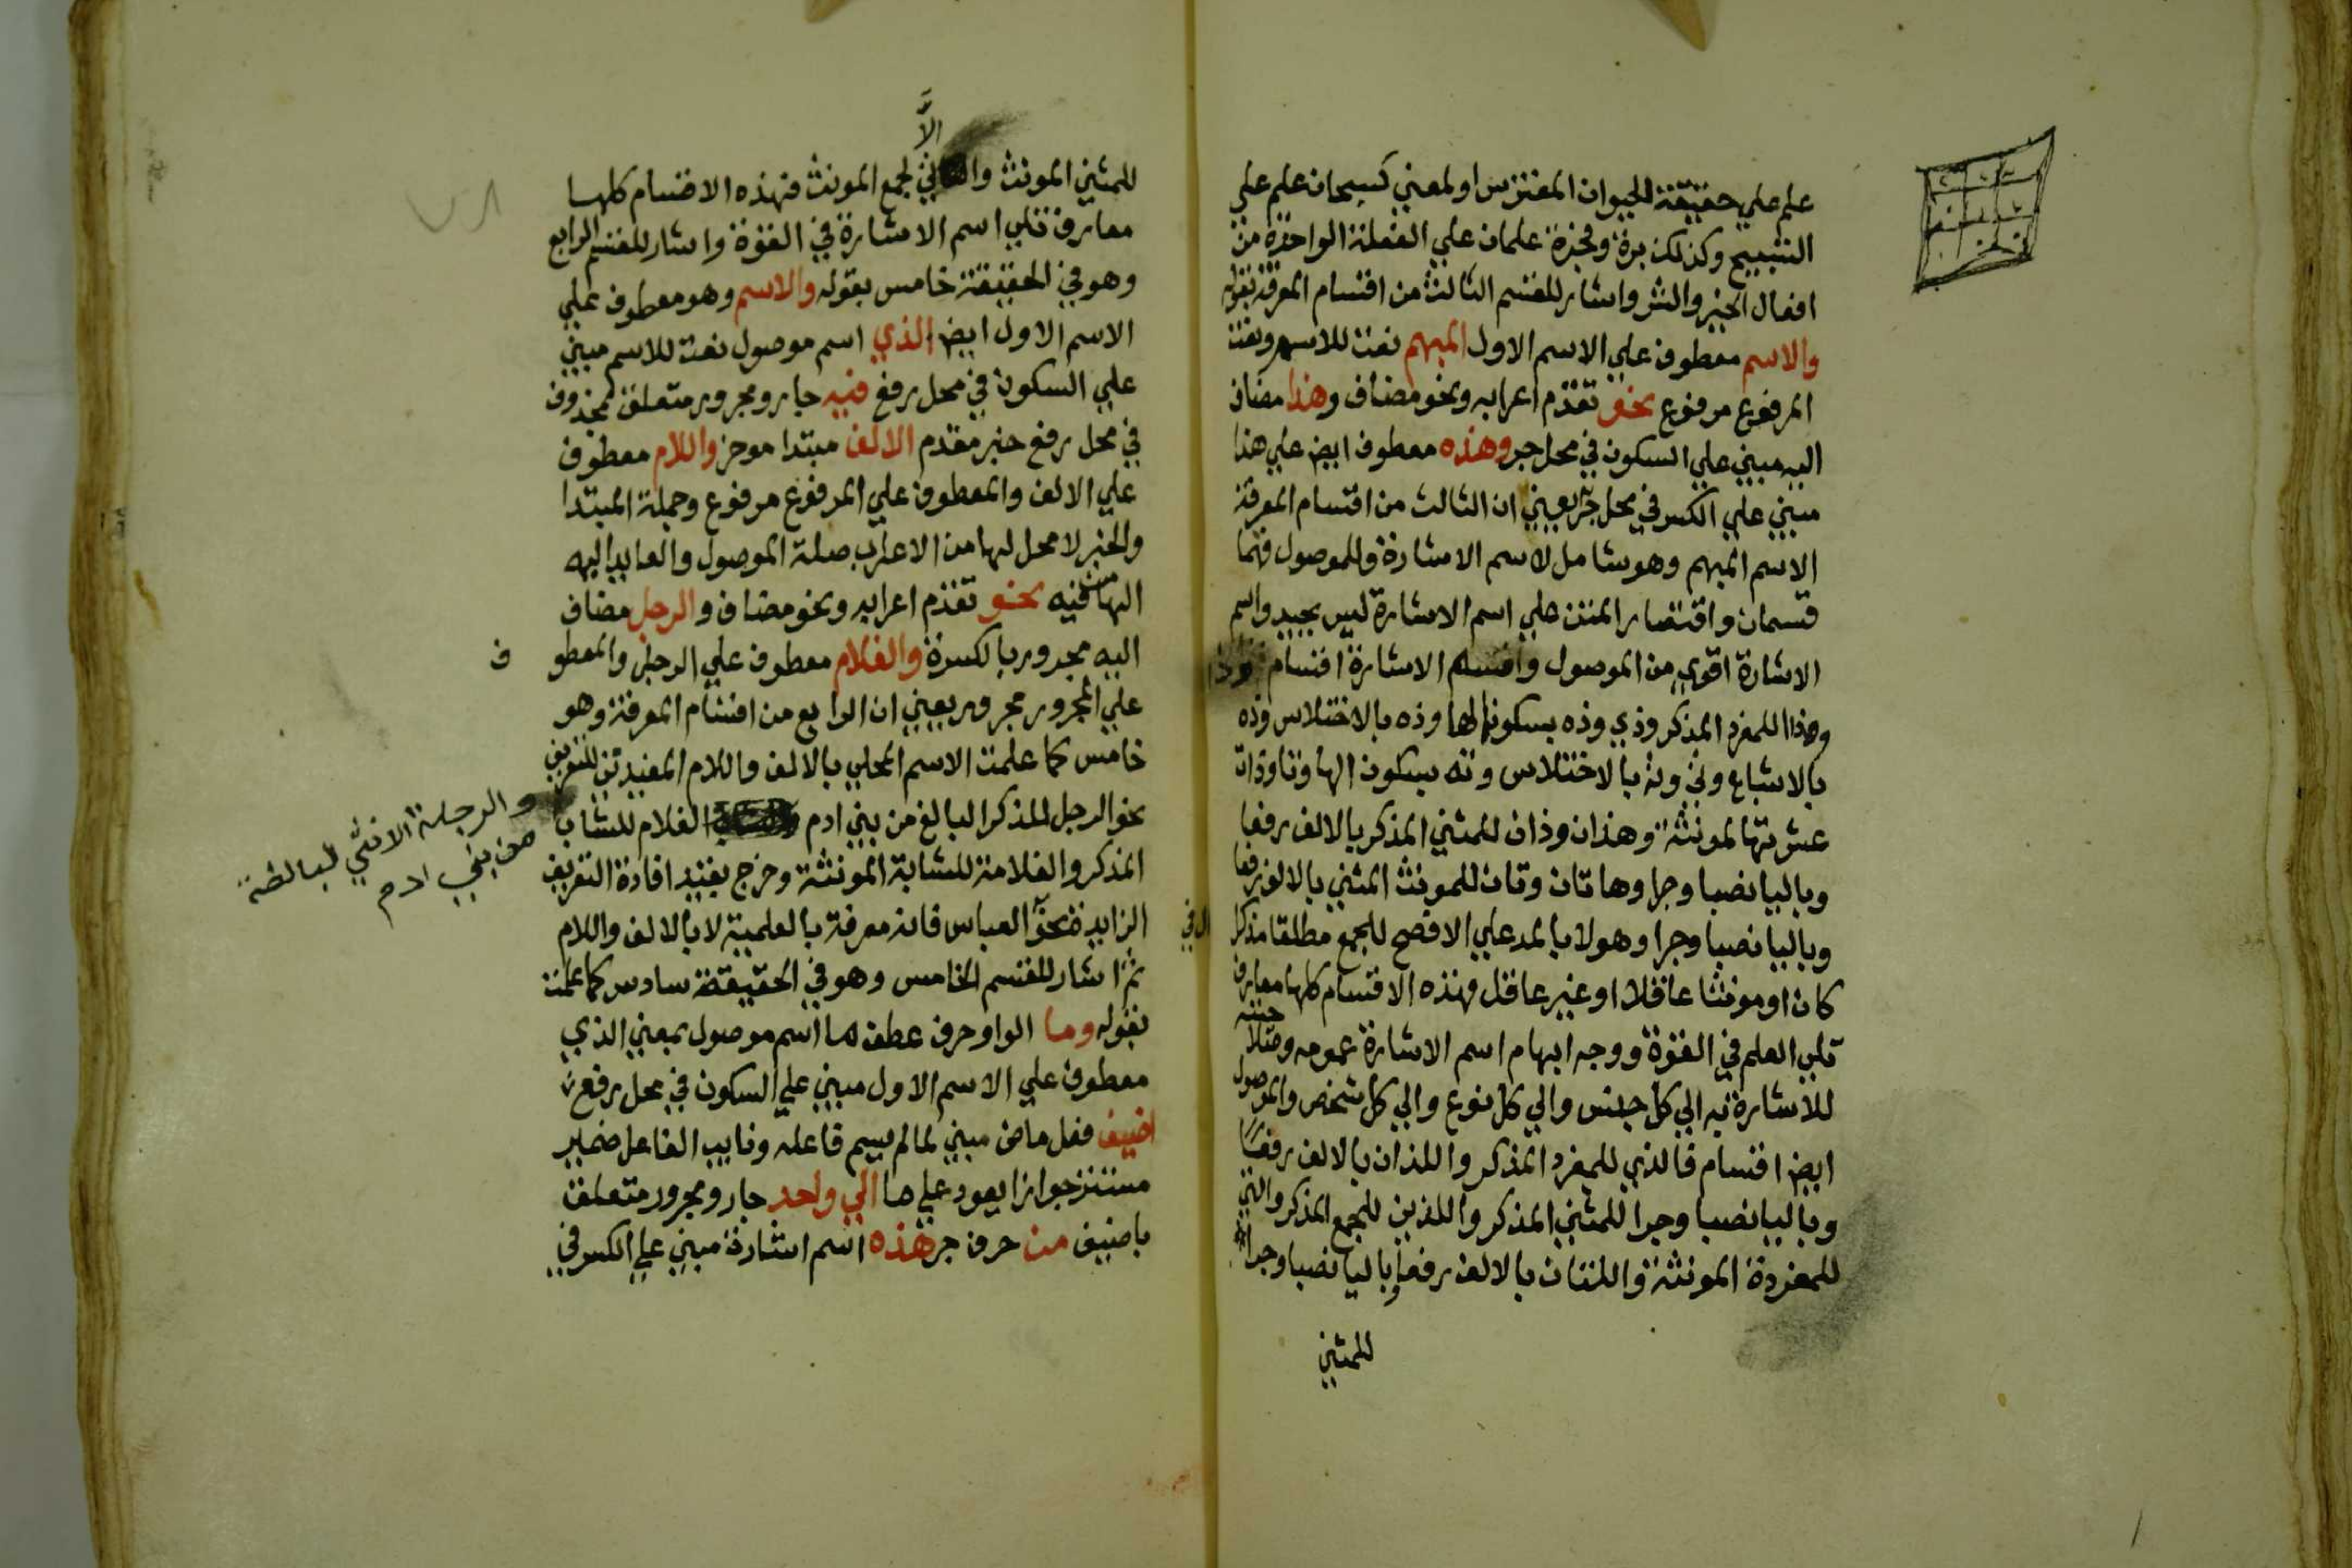 علم علي حقيقة الحيوان المفترس او لمعني كسبحان علم علي
التسبيح وكذلك برة وفجرة علمان علي الفعلة الواحدة من
افعال الخير والشر واشار للقسم الثالث من اقسام المعرفة بقوله
والاسم معطوف علي الاسم الاول المبهم نعت للاسم ونعت
المرفوع مرفوع نحو تقدم اعرابه ونحو مضاف وهذا مضاف
اليه مبني علي السكون في محل جر وهذه معطوف ايض علي هذا
مبني علي الكسر في محل جر يعني ان الثالث من اقسام المعرفة
الاسم المبهم وهو شامل لاسم الاشارة وللموصول فهما
قسمان واقتصار المتن علي اسم الاشارة ليس بجيد واسم
الاشارة اقوي من الموصول واقسام الاشارة اقسام وذا
وهذا للمفرد المذكر وذي وذه بسكون الها وذه بالاختلاس وذه
بالاشباع وتي وته بالاختلاس وته بسكون الها وتا وذات
عشرتها لمونثة وهذان وذان للمثني المذكر بالالف رفعا
وباليا نصبا وجرا وهاتان وتان للمونث المثني بالالف رفعا
وباليا نصبا وجرا وهولا بالمد علي الافصح للجمع مطلقا مذكرا
كان او مونثا عاقلا او غير عاقل فهذه الاقسام كلها معارف
تلي العلم في القوة ووجه ابهام اسم الاشارة عمومه وصلاحيته
للاشارة به الي كل جنس والي كل نوع والي كل شخص والموصول
ايض اقسام فالذي للمفرد المذكر واللذان بالالف رفعا
وباليا نصبا وجرا للمثني المذكر والذين للجمع المذكر والتي
للمفردة المونثة واللتان بالالف رفعا وباليا نصبا وجرا
للمثني
الا
للمثني المونث والاتي لجمع المونث فهذه الاقسام كلها
معارف تلي اسم الاشارة في القوة واشار للقسم الرابع
وهو في الحقيقة خامس بقوله والاسم وهو معطوف علي
الاسم الاول ايض الذي اسم موصول نعت للاسم مبني
علي السكون في محل رفع فيه جار ومجرور متعلق بمحذوف
في محل رفع خبر مقدم الالف مبتدا موخر واللام معطوف
علي الالف والمعطوف علي المرفوع مرفوع وجملة المبتدا
والخبر لا محل لها من الاعراب صلة الموصول والعايد اليه
الها من فيه نحو تقدم اعرابه ونحو مضاف والرجل مضاف
اليه مجرور بالكسرة والغلام معطوف علي الرجل والمعطو ف
علي المجرور مجرور يعني ان الرابع من اقسام المعرفة وهو
خامس كما علمت الاسم المحلي بالالف واللام المفيدتين للتعريف
نحو الرجل للمذكر البالغ من بني ادم الغلام للشاب
والرجلة الانثي البالغة
من بني ادم
المذكر والغلامة للشابة المونثة وخرج بقيد افادة التعريف
الزايدة نحو العباس فانه معرفة بالعلمية لا بالالف واللام
ثم اشار للقسم الخامس وهو في الحقيقة سادس كما علمت
بقوله وما الواو حرف عطف ما اسم موصول بمعني الذي
معطوف علي الاسم الاول مبني علي السكون في محل رفع
اضيف فعل ماض مبني لما لم يسم فاعله ونايب الفاعل ضمير
مستتر جوازا يعود علي ما الي واحد جار ومجرور متعلق
باضيف من حرف جر هذه اسم اشارة مبني علي الكسر في